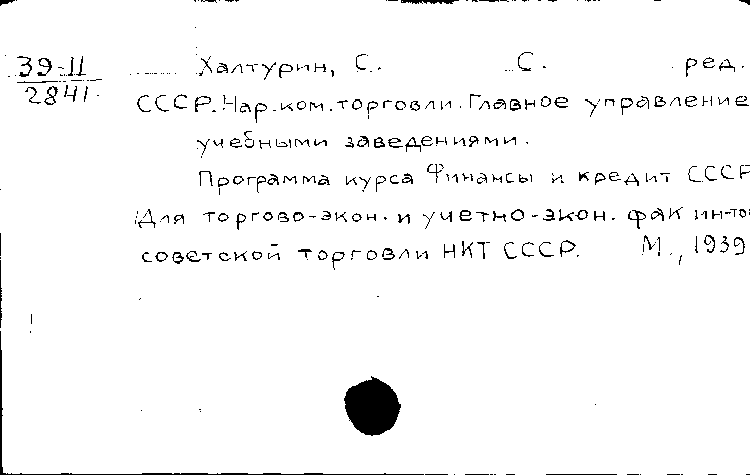 39-II
2841
Халтурин, С. С. ред.
СССР. Нар. ком. торговли. Главное управление
учебными заведениями.
Программа курса Финансы и кредит СССР
Для торгово-экон. и учетно-экон. фак ин-тов
советской торговли НКТ СССР. М., 1939